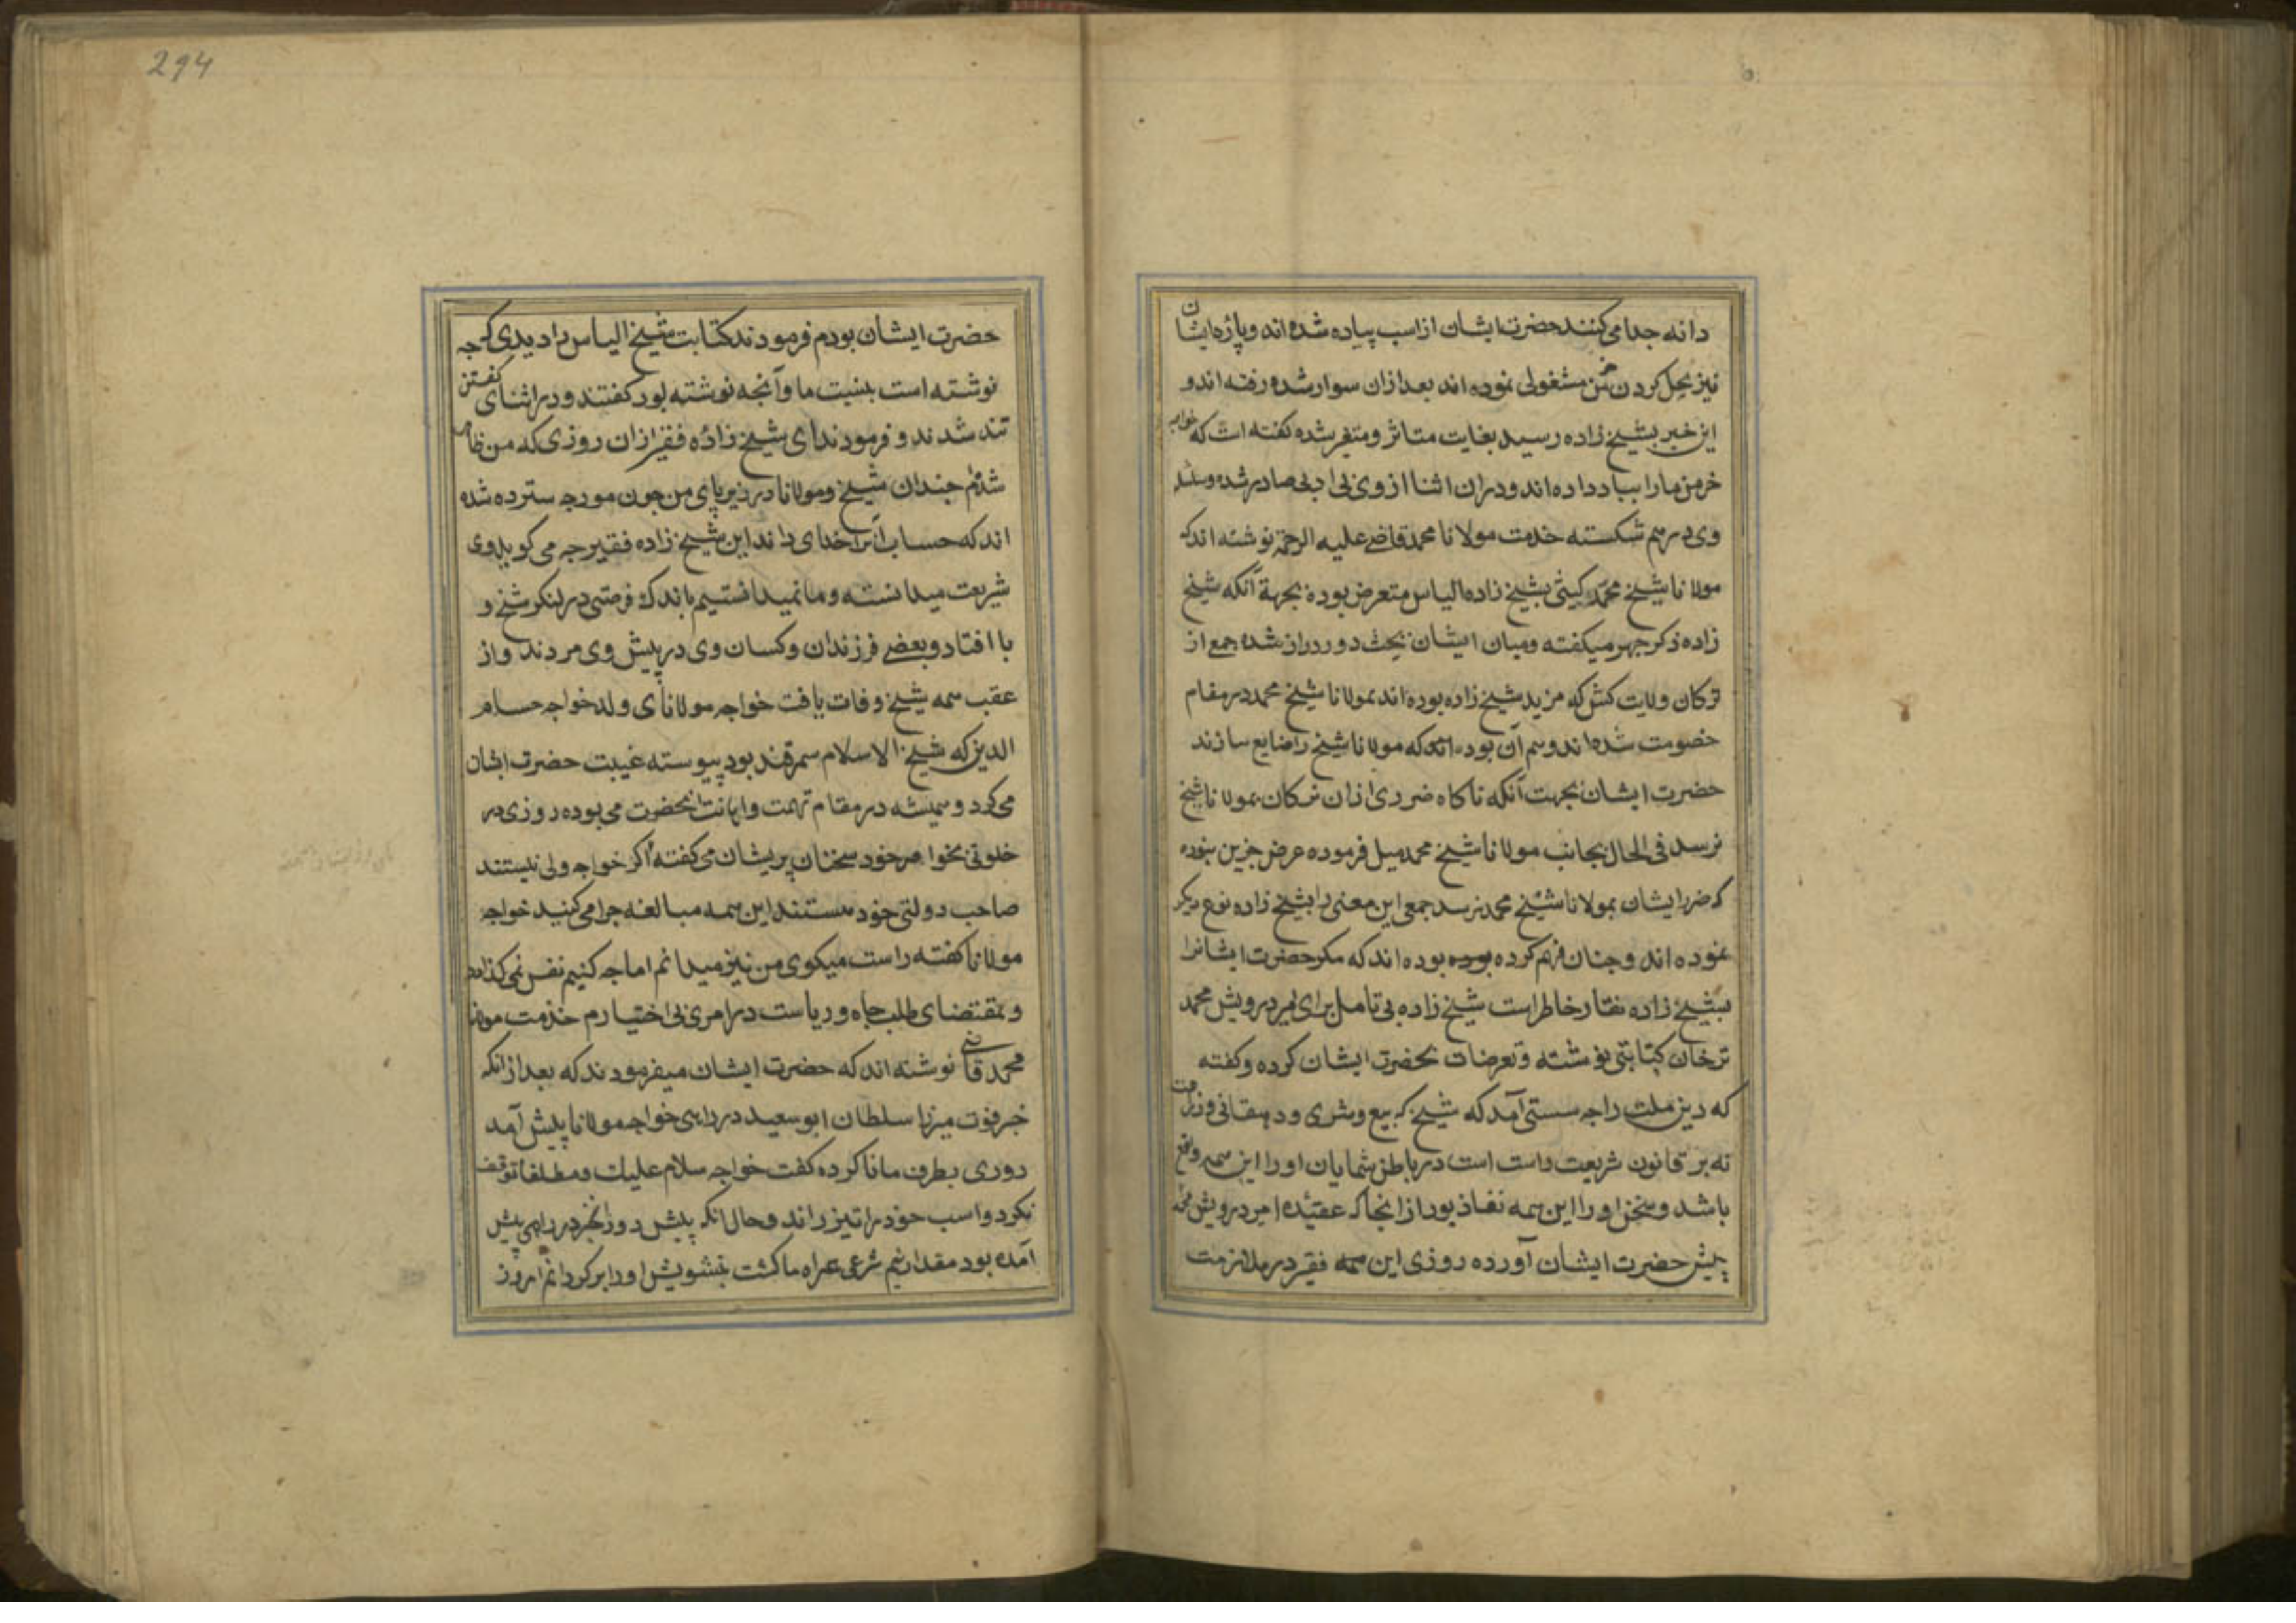 دانه جدا می کنند حضرت ایشان از اسب پیاده شده اند و پازه ایشان
نیز بحل کردن خرمن مشغولی نموده اند بعد ازان سوار شده رفته اند و
این خبر بشیخ زاده رسید بغایت متاثر و متغیر شده گفته است که خواجه
خرمن ما را بباد داده اند و دران اثنا از وی بی ادبی صادر شده و سلسله
وی درهم شکسته خدمت مولانا محمد قاضی علیه الرحمة نوشته اند که
مولانا شیخ محمد کیشی بشیخ زاده الیاس متعرض بوده بجهة آنکه شیخ
زاده ذکر جهر میکفته و میان ایشان بحث دور دراز شده جمع از
ترکان ولایت کش که مرید شیخ زاده بوده اند بمولانا شیخ محمد در مقام
خصومت شده اند و هم آن بوده اند که مولانا شیخ را ضایع سازند
حضرت ایشان بجهت آنکه ناکاه ضرری ازان ترکان بمولانا شیخ
نرسد فی الحال بجانب مولانا شیخ محمد میل فرموده عرض جزین نبوده
که ضرر ایشان بمولانا شیخ محمد نرسد جمعی این معنی را بشیخ زاده نوع دیکر
نموده اند و چنان فهم کرده بوده بوده اند که مکر حضرت ایشانرا
بشیخ زاده نقار خاطر است شیخ زاده بی تامل برای امیر درویش محمد
ترخان کتابتی نوشته و تعرضات بحضرت ایشان کرده و کفته
که دین ملت را چه سستی آمد که شیخ که بیع و شری و دهقانی و زراعت
نه بر قانون شریعت راست است در باطن شمایان او را این همه وقع
باشد و سخن او را این همه نفاذ بود از انجا که عقیده امیر درویش محمد
پیش حضرت ایشان آورده روزی این همه فقیر در ملازمت
حضرت ایشان بودم فرمودند کتابت شیخ الیاس را دیدی که چه
نوشته است بنسبت ما و آنجه نوشته بود کفتند و در اثنای کفتن
تند شدند و فرمودند ای شیخ زاده فقیر ازان روزی که من ظاهر
شده ام جندان شیخ و مولانا در زیر پای من چون مورچه سترده شده
اند که حساب آنرا خدای داند این شیخ زاده فقیر جه می کوید وی
شریعت میدانسته و ما نمیدانستیم باندک فرصتی در لنکر شیخ و
با افتاد و بعضی فرزندان و کسان وی در پیش وی مردند و از
عقب همه شیخ وفات یافت خواجه مولانای ولد خواجه حسام
الدین که شیخ الاسلام سمرقند بود پیوسته غیبت حضرت ایشان
می کرد و همیشه در مقام تهمت و اهانت انحضرت می بوده روزی در
خلوتی بخواهر خود سخنان پریشان می کفته اکر خواجه ولی نیستند
صاحب دولتی خود هستند این همه مبالغه جرا می کنید خواجه
مولانا کفته راست میکوی من نیز میدانم اما جه کنیم نفس نمی کذارد
و بمقتضای طلب جاه و ریاست درامری بی اختیارم خدمت مولانا
محمد قاضی نوشته اند که حضرت ایشان میفرمودند که بعد ازانکه
خبر فوت میرزا سلطان ابو سعید در راهی خواجه مولانا پیش آمد
روری بطرف ما نا کرده کفت خواجه سلام علیک و مطلقا توقف
نکرد و اسب خود را تیز راند و حال انکه پیش دوراندر راهی پیش
آمده بود مقدار نیم شرعی همراه ما کشت بتشویش او را بر کردانم امروز
294